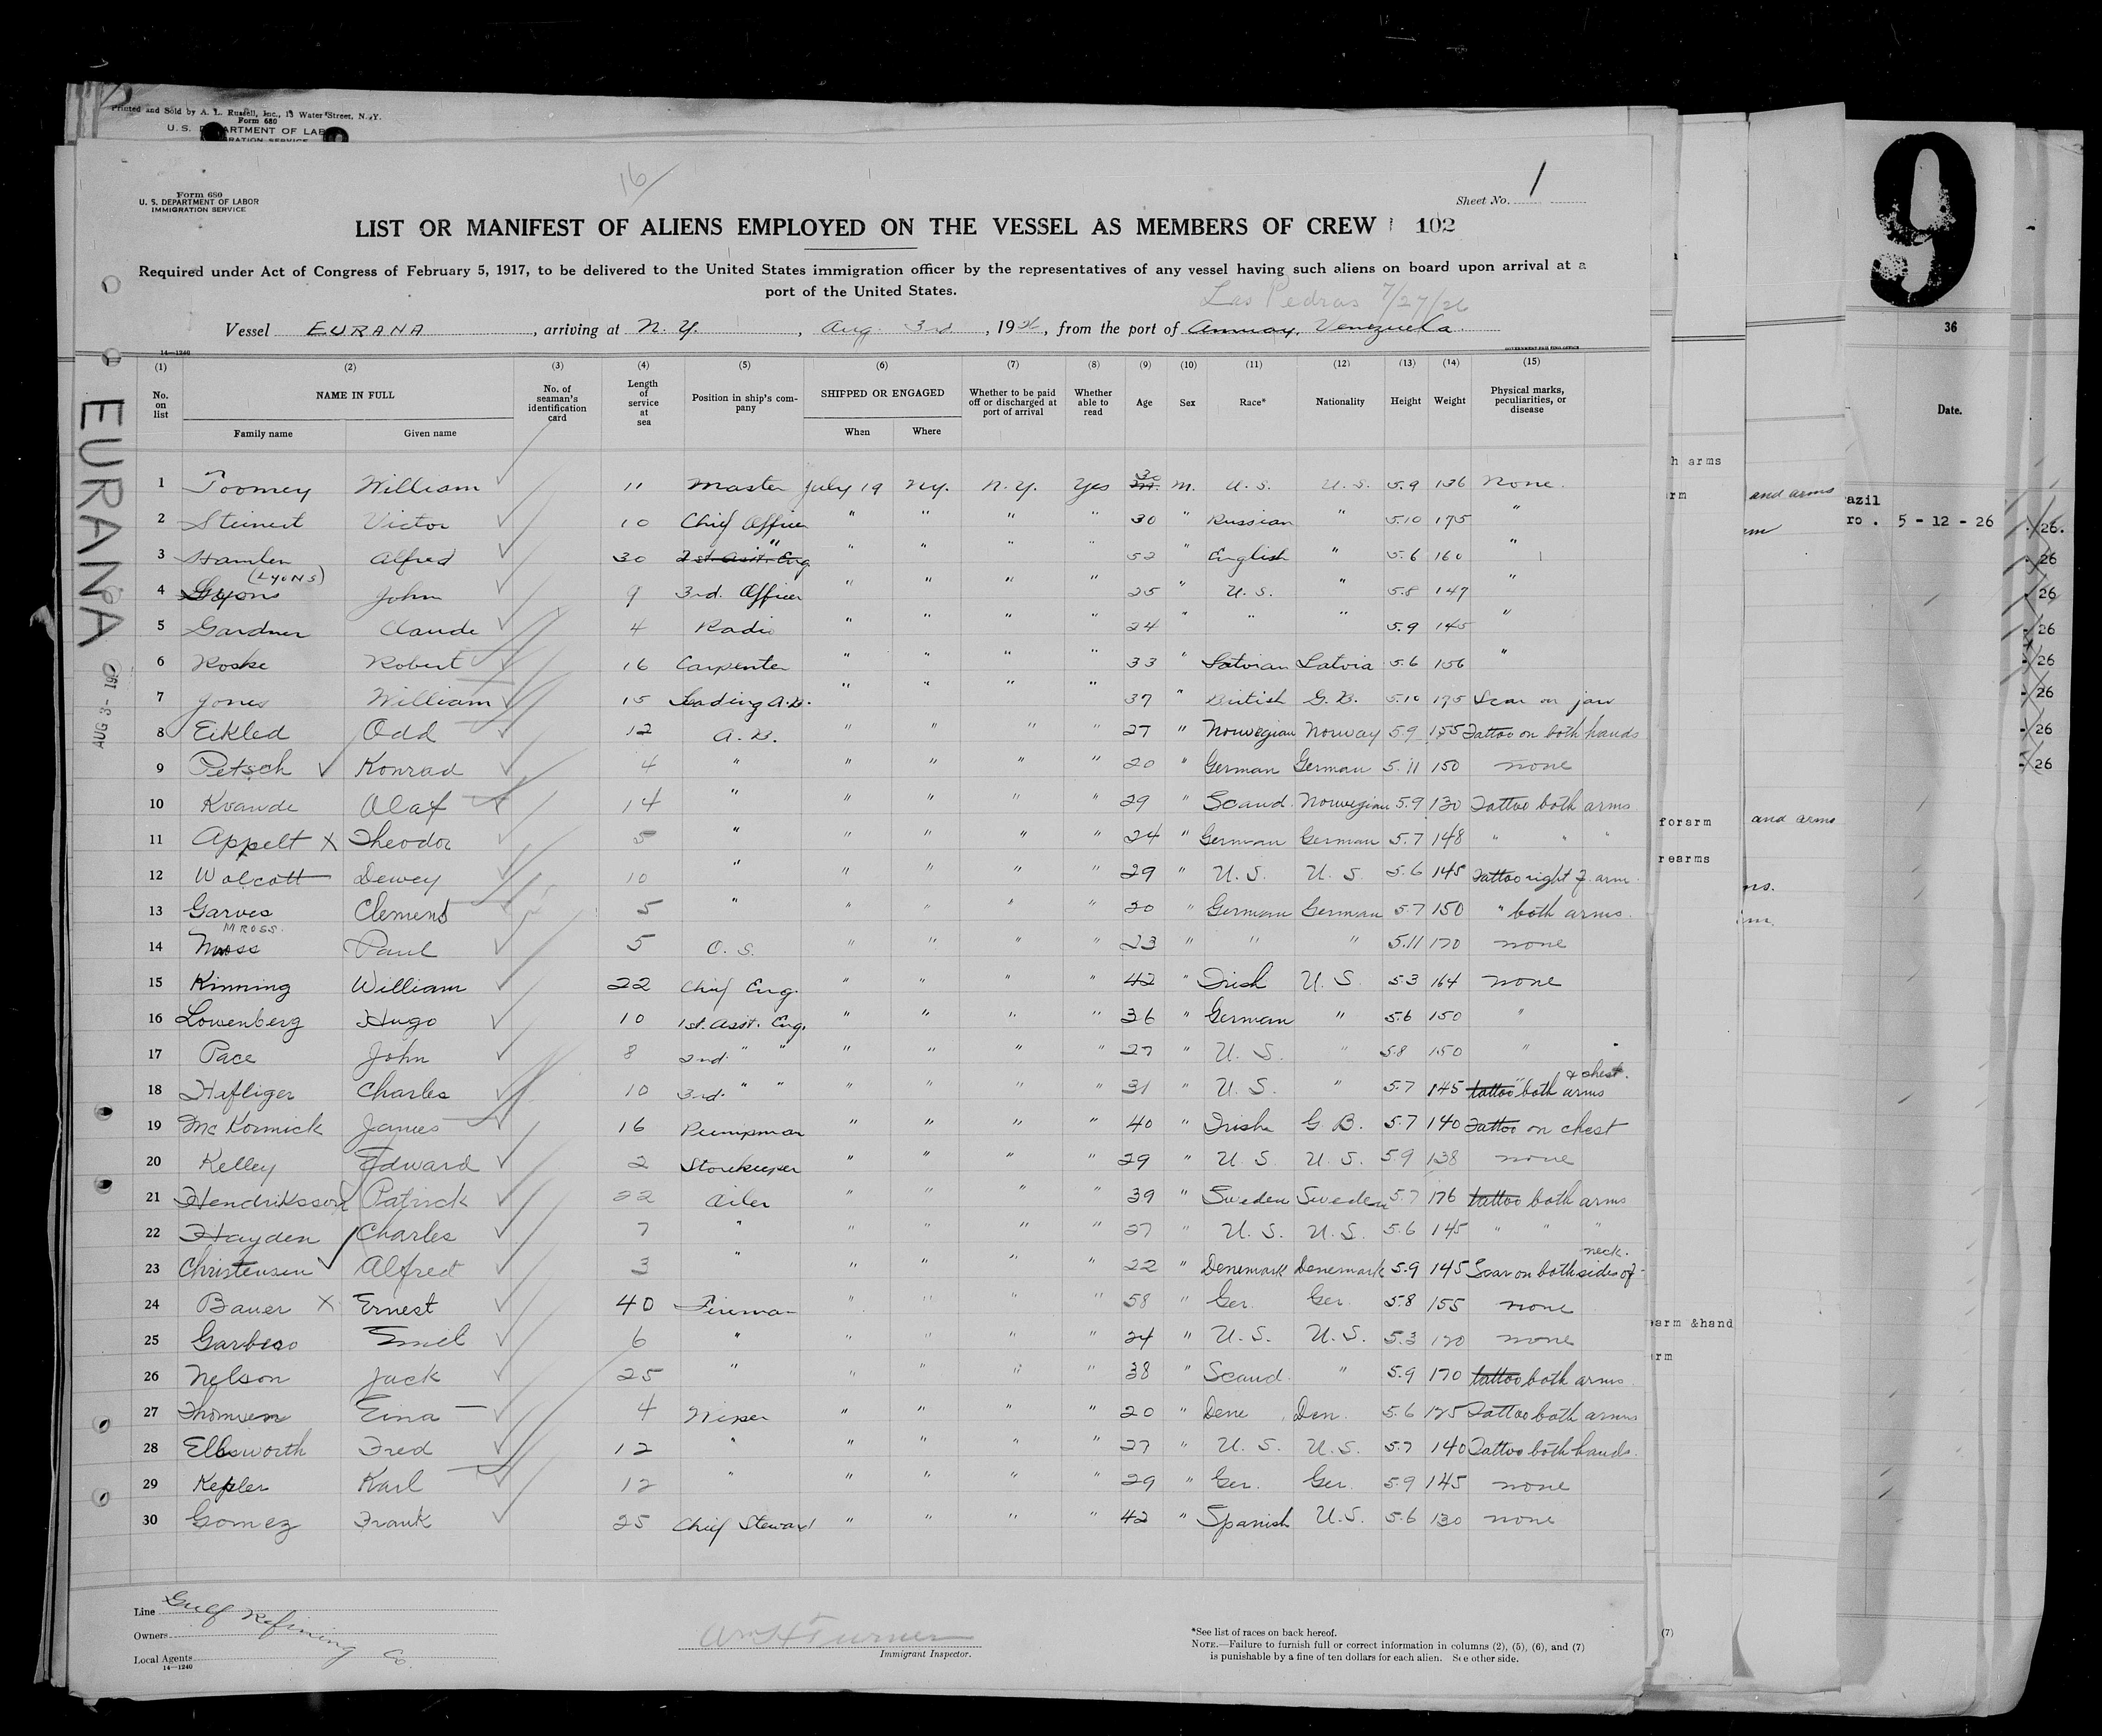 Printed and Sold by A. L. Russell, Inc., 13 Water Street, N.Y.
Form 680
U. S. DEPARTMENT OF LAB
16/
Form 680
U. S. DEPARTMENT OF LABOR
IMMIGRATION SERVICE
Sheet No. 1
LIST OR MANIFEST OF ALIENS EMPLOYED ON THE VESSEL AS MEMBERS OF CREW 102
Required under Act of Congress of February 5, 1917, to be delivered to the United States immigration officer by the representatives of any vessel having such aliens on board upon arrival at a
port of the United States.
Las Pedras 7/27/26
Vessel EURANA, arriving at N. Y., Aug. 3rd, 1926, from the port of Amuay, Venezuela.
14—1240
GOVERNMENT PRINTING OFFICE
(1) (2) (3) (4) (5) (6) (7) (8) (9) (10) (11) (12) (13) (14) (15)
No. on list NAME IN FULL No. of seaman's identification card Length of service at sea Position in ship's company SHIPPED OR ENGAGED Whether to be paid off or discharged at port of arrival Whether able to read Age Sex Race* Nationality Height Weight Physical marks, peculiarities, or disease
Family name Given name When Where
1 Toomey William 11 Master July 19 N.Y. N.Y. Yes 30 M. U. S. U. S. 5.9 136 None.
2 Steinert Victor 10 Chief Officer " " " " 30 " Russian " 5.10 175 "
3 Hamlen Alfred 30 2 st. Asst. Eng. " " " " 52 " English " 5.6 160 "
(LYONS)
4 Gyons John 9 3rd. Officer " " " " 25 " U. S. " 5.8 147 "
5 Gardner Claude 4 Radio " " " " 24 " " " 5.9 145 "
6 Roske Robert 16 Carpenter " " " " 33 " Latvian Latvia 5.6 156 "
7 Jones William 15 Leading A.B. " " " " 37 " British G. B. 5.10 175 Scar on jaw
8 Eikled Odd 12 A. B. " " " " 27 " Norwegian Norway 5.9 155 Tattoo on both hands
9 Petsch Konrad 4 " " " " " 20 " German German 5.11 150 none
10 Kvande Olaf 14 " " " " " 29 " Scand. Norwegian 5.9 130 Tattoo both arms
11 Appelt X Theodor 5 " " " " " 24 " German German 5.7 148 " " "
12 Wolcott Dewey 10 " " " " " 29 " U. S. U. S. 5.6 145 Tattoo right f. arm.
13 Garves Clemens 5 " " " " " 20 " German German 5.7 150 " both arms.
MROSS.
14 Mross Paul 5 O. S. " " " " 23 " " " 5.11 170 none
15 Kinning William 22 Chief Eng. " " " " 42 " Irish U. S. 5.3 164 none
16 Lowenberg Hugo 10 1st. Asst. Eng. " " " " 36 " German " 5.6 150 "
17 Pace John 8 2nd. " " " " " " 27 " U. S. " 5.8 150 "
& chest.
18 Hefliger Charles 10 3rd. " " " " " " 31 " U. S. " 5.7 145 tattoo both arms
19 Mc Kormick James 16 Pumpman " " " " 40 " Irish G. B. 5.7 140 Tattoo on chest
20 Kelley Edward 2 Storekeeper " " " " 29 " U. S. U. S. 5.9 138 none
21 Hendriksson Patrick 22 Oiler " " " " 39 " Sweden Sweden 5.7 176 tattoo both arms
22 Hayden Charles 7 " " " " " 27 " U. S. U. S. 5.6 145 " " "
neck.
23 Christensen Alfred 3 " " " " " 22 " Denemark Denemark 5.9 145 Scar on both sides of
24 Bauer X Ernest 40 Fireman " " " " 58 " Ger. Ger. 5.8 155 none
25 Garbeso Emil 6 " " " " " 24 " U. S. U. S. 5.3 120 none
26 Nelson Jack 25 " " " " " 38 " Scand. " 5.9 170 tattoo both arms
27 Thomsen Eina 4 Wiper " " " " 20 " Dene Den. 5.6 125 Tattoo both arms
28 Ellsworth Fred 12 " " " " " 27 " U. S. U. S. 5.7 140 Tattoo both hands.
29 Kepler Karl 12 " " " " " 29 " Ger. Ger. 5.9 145 none
30 Gomez Frank 25 Chief Steward " " " " 42 " Spanish U. S. 5.6 130 none
Line Gulf Refining Co.
Owners
Local Agents
14—1240
Wm H Turner
Immigrant Inspector.
*See list of races on back hereof.
NOTE.—Failure to furnish full or correct information in columns (2), (5), (6), and (7)
is punishable by a fine of ten dollars for each alien. See other side.
EURANA
AUG 3- 19
h arms
rm
forarm
rearms
arm &hand
rm
(7)
and arms
and arms
9
36
Date.
azil
ro. 5-12-26
26.
26
26
26
26
26
26
26